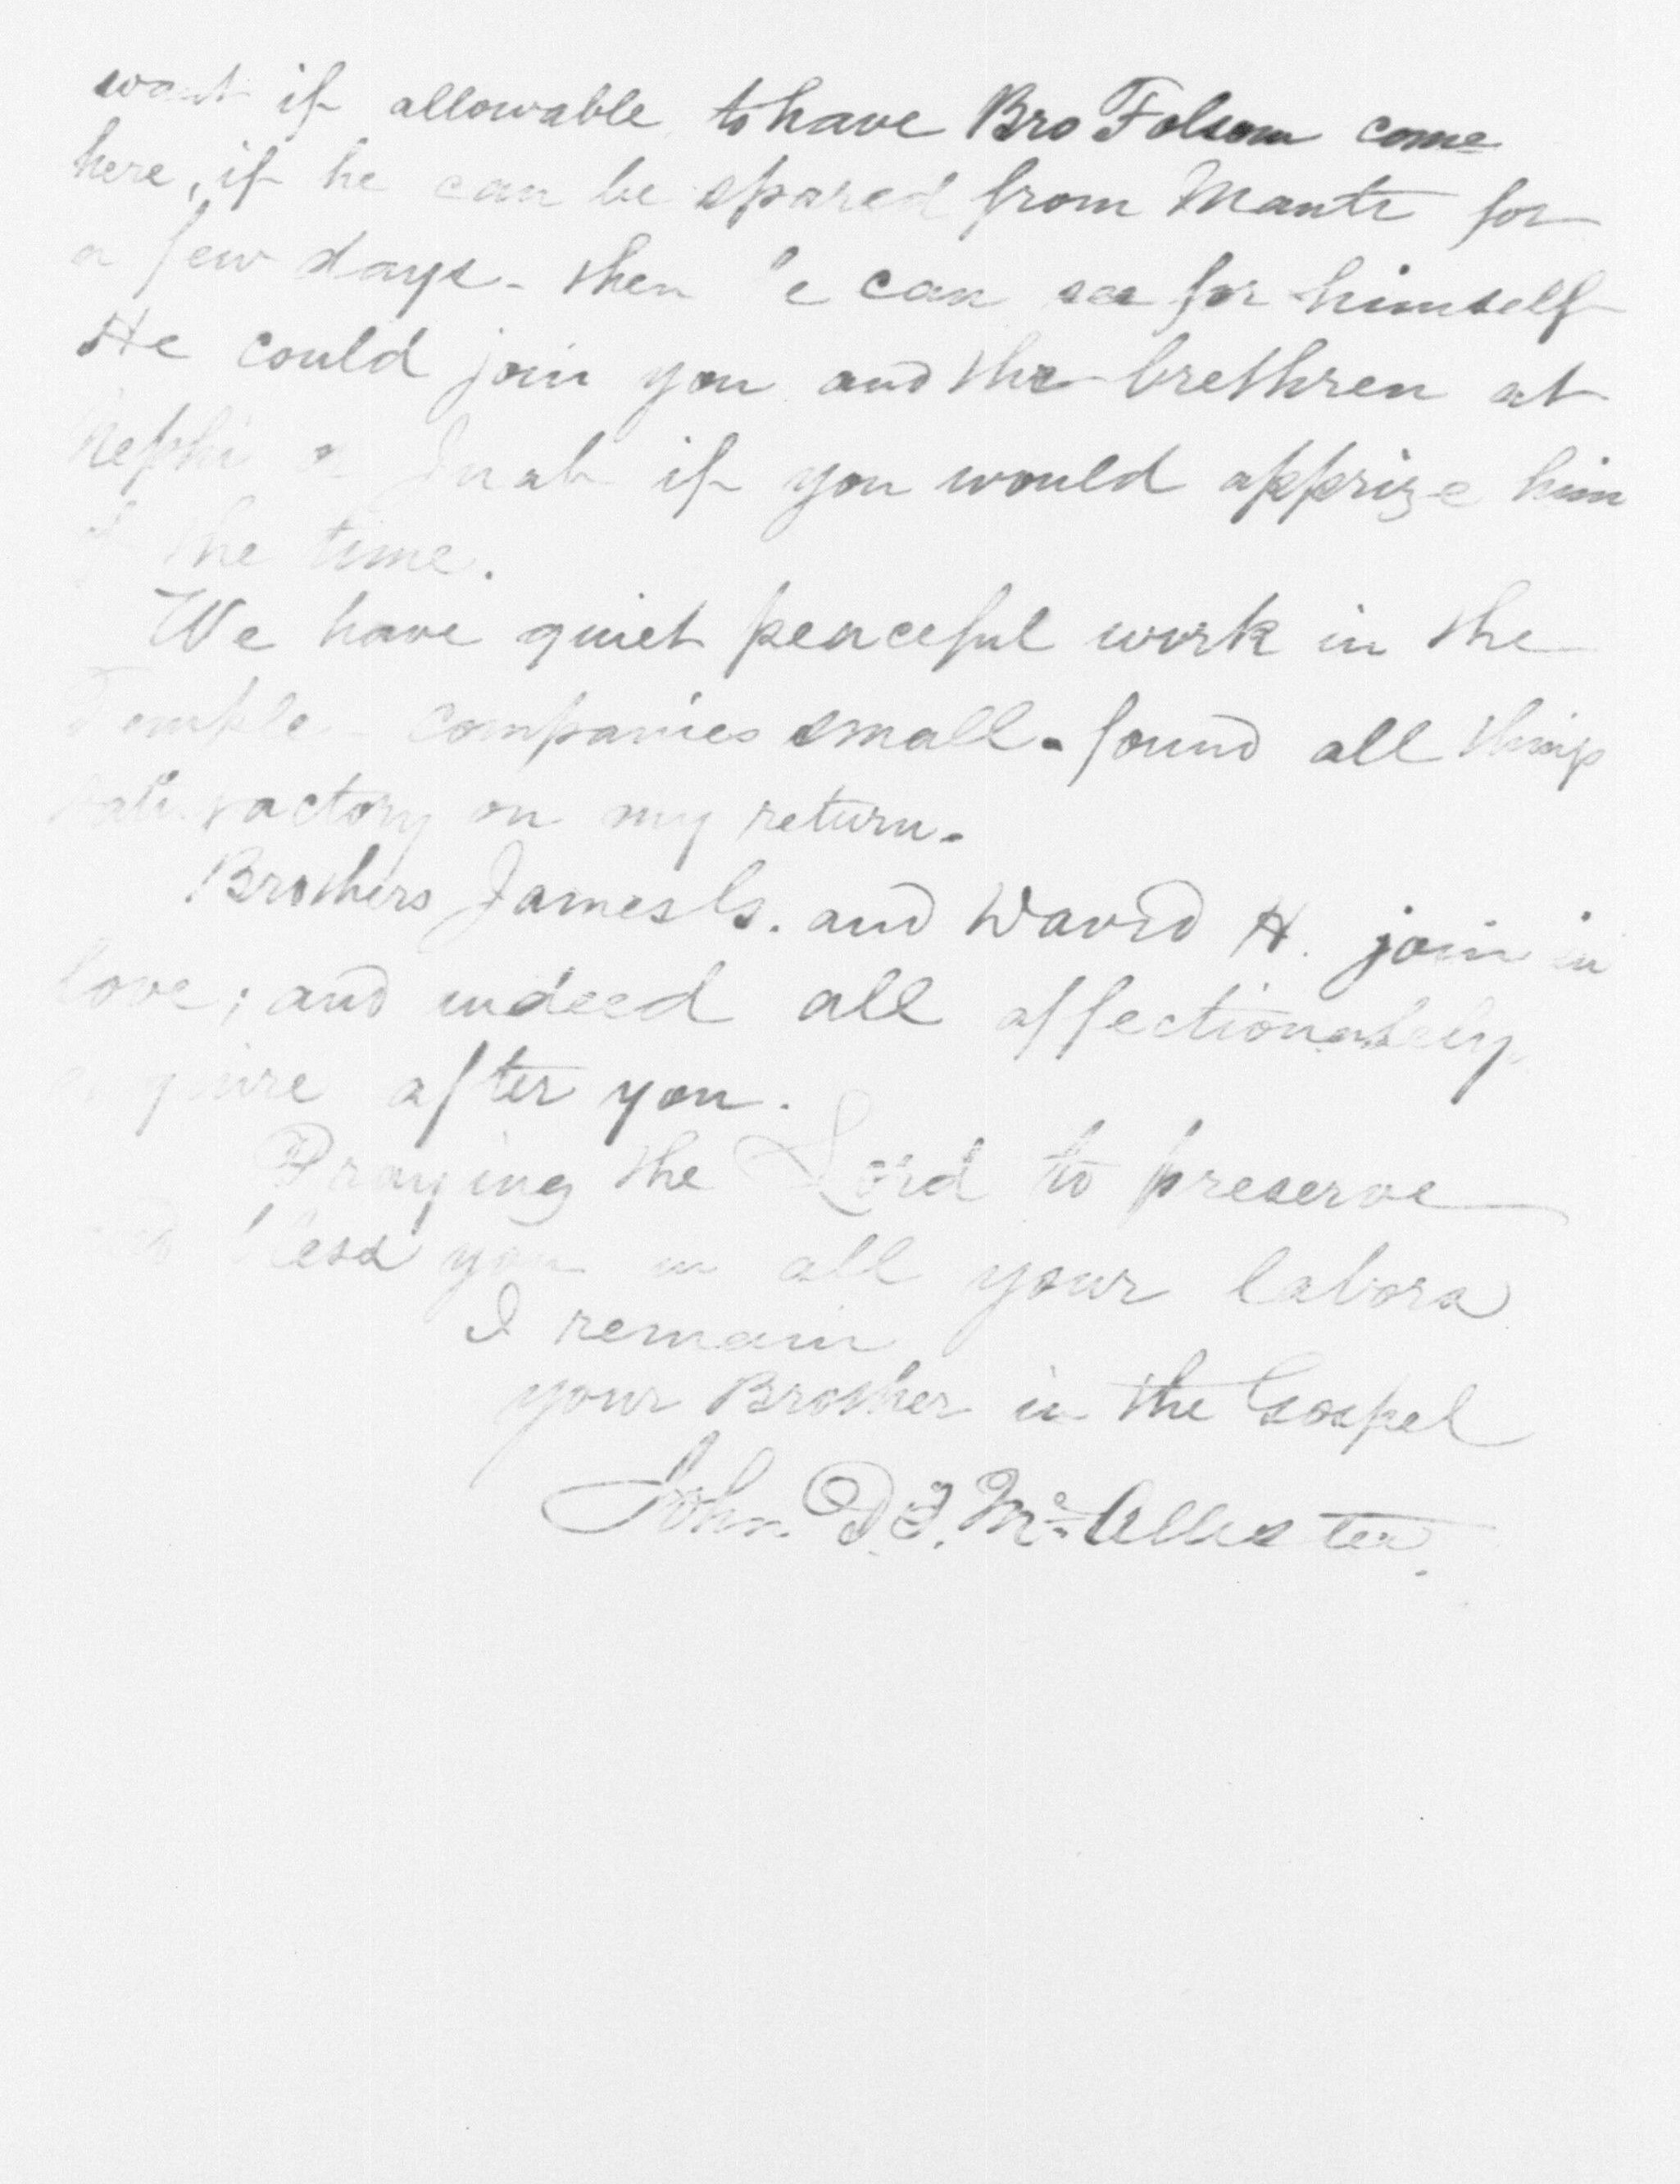 want if allowable to have Bro Folsom come
here, if he can be spared from Manti for
a few days - then he can see for himself
He could join you and the brethren at
Nephi or Juab if you would apprize him
of the time.
We have quiet peaceful work in the
Temple - companies small - found all things
satisfactory on my return.
Brothers James G. and David H. join in
love; and indeed all affectionately
enquire after you.
Praying the Lord to preserve
and bless you in all your labors
I remain
your Brother in the Gospel
John D. T. McAllister.